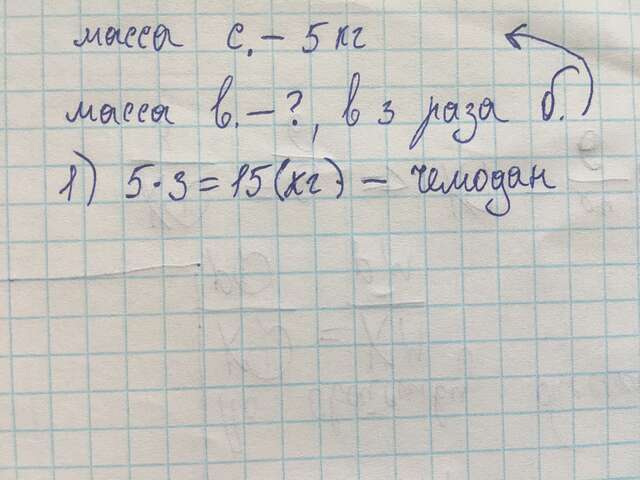 масса с. – 5 кг
масса в. – ?, в 3 раза б.
1) 5·3=15(кг) – чемодан